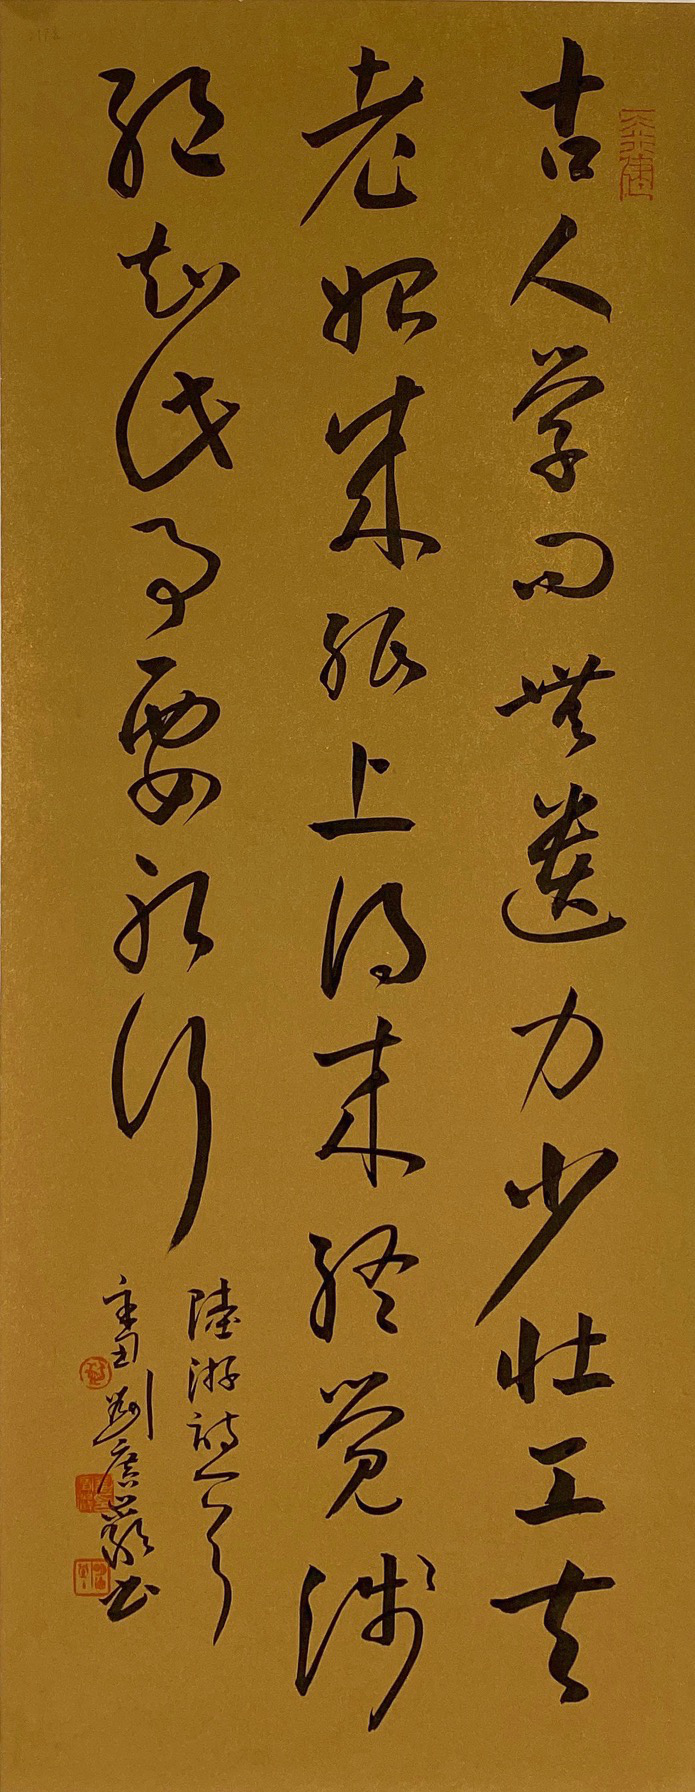 古人学问無遗力少壮工夫
老始成纸上得来终觉浅
绝知此事要躬行
陸游詩一首
劉广嚴书